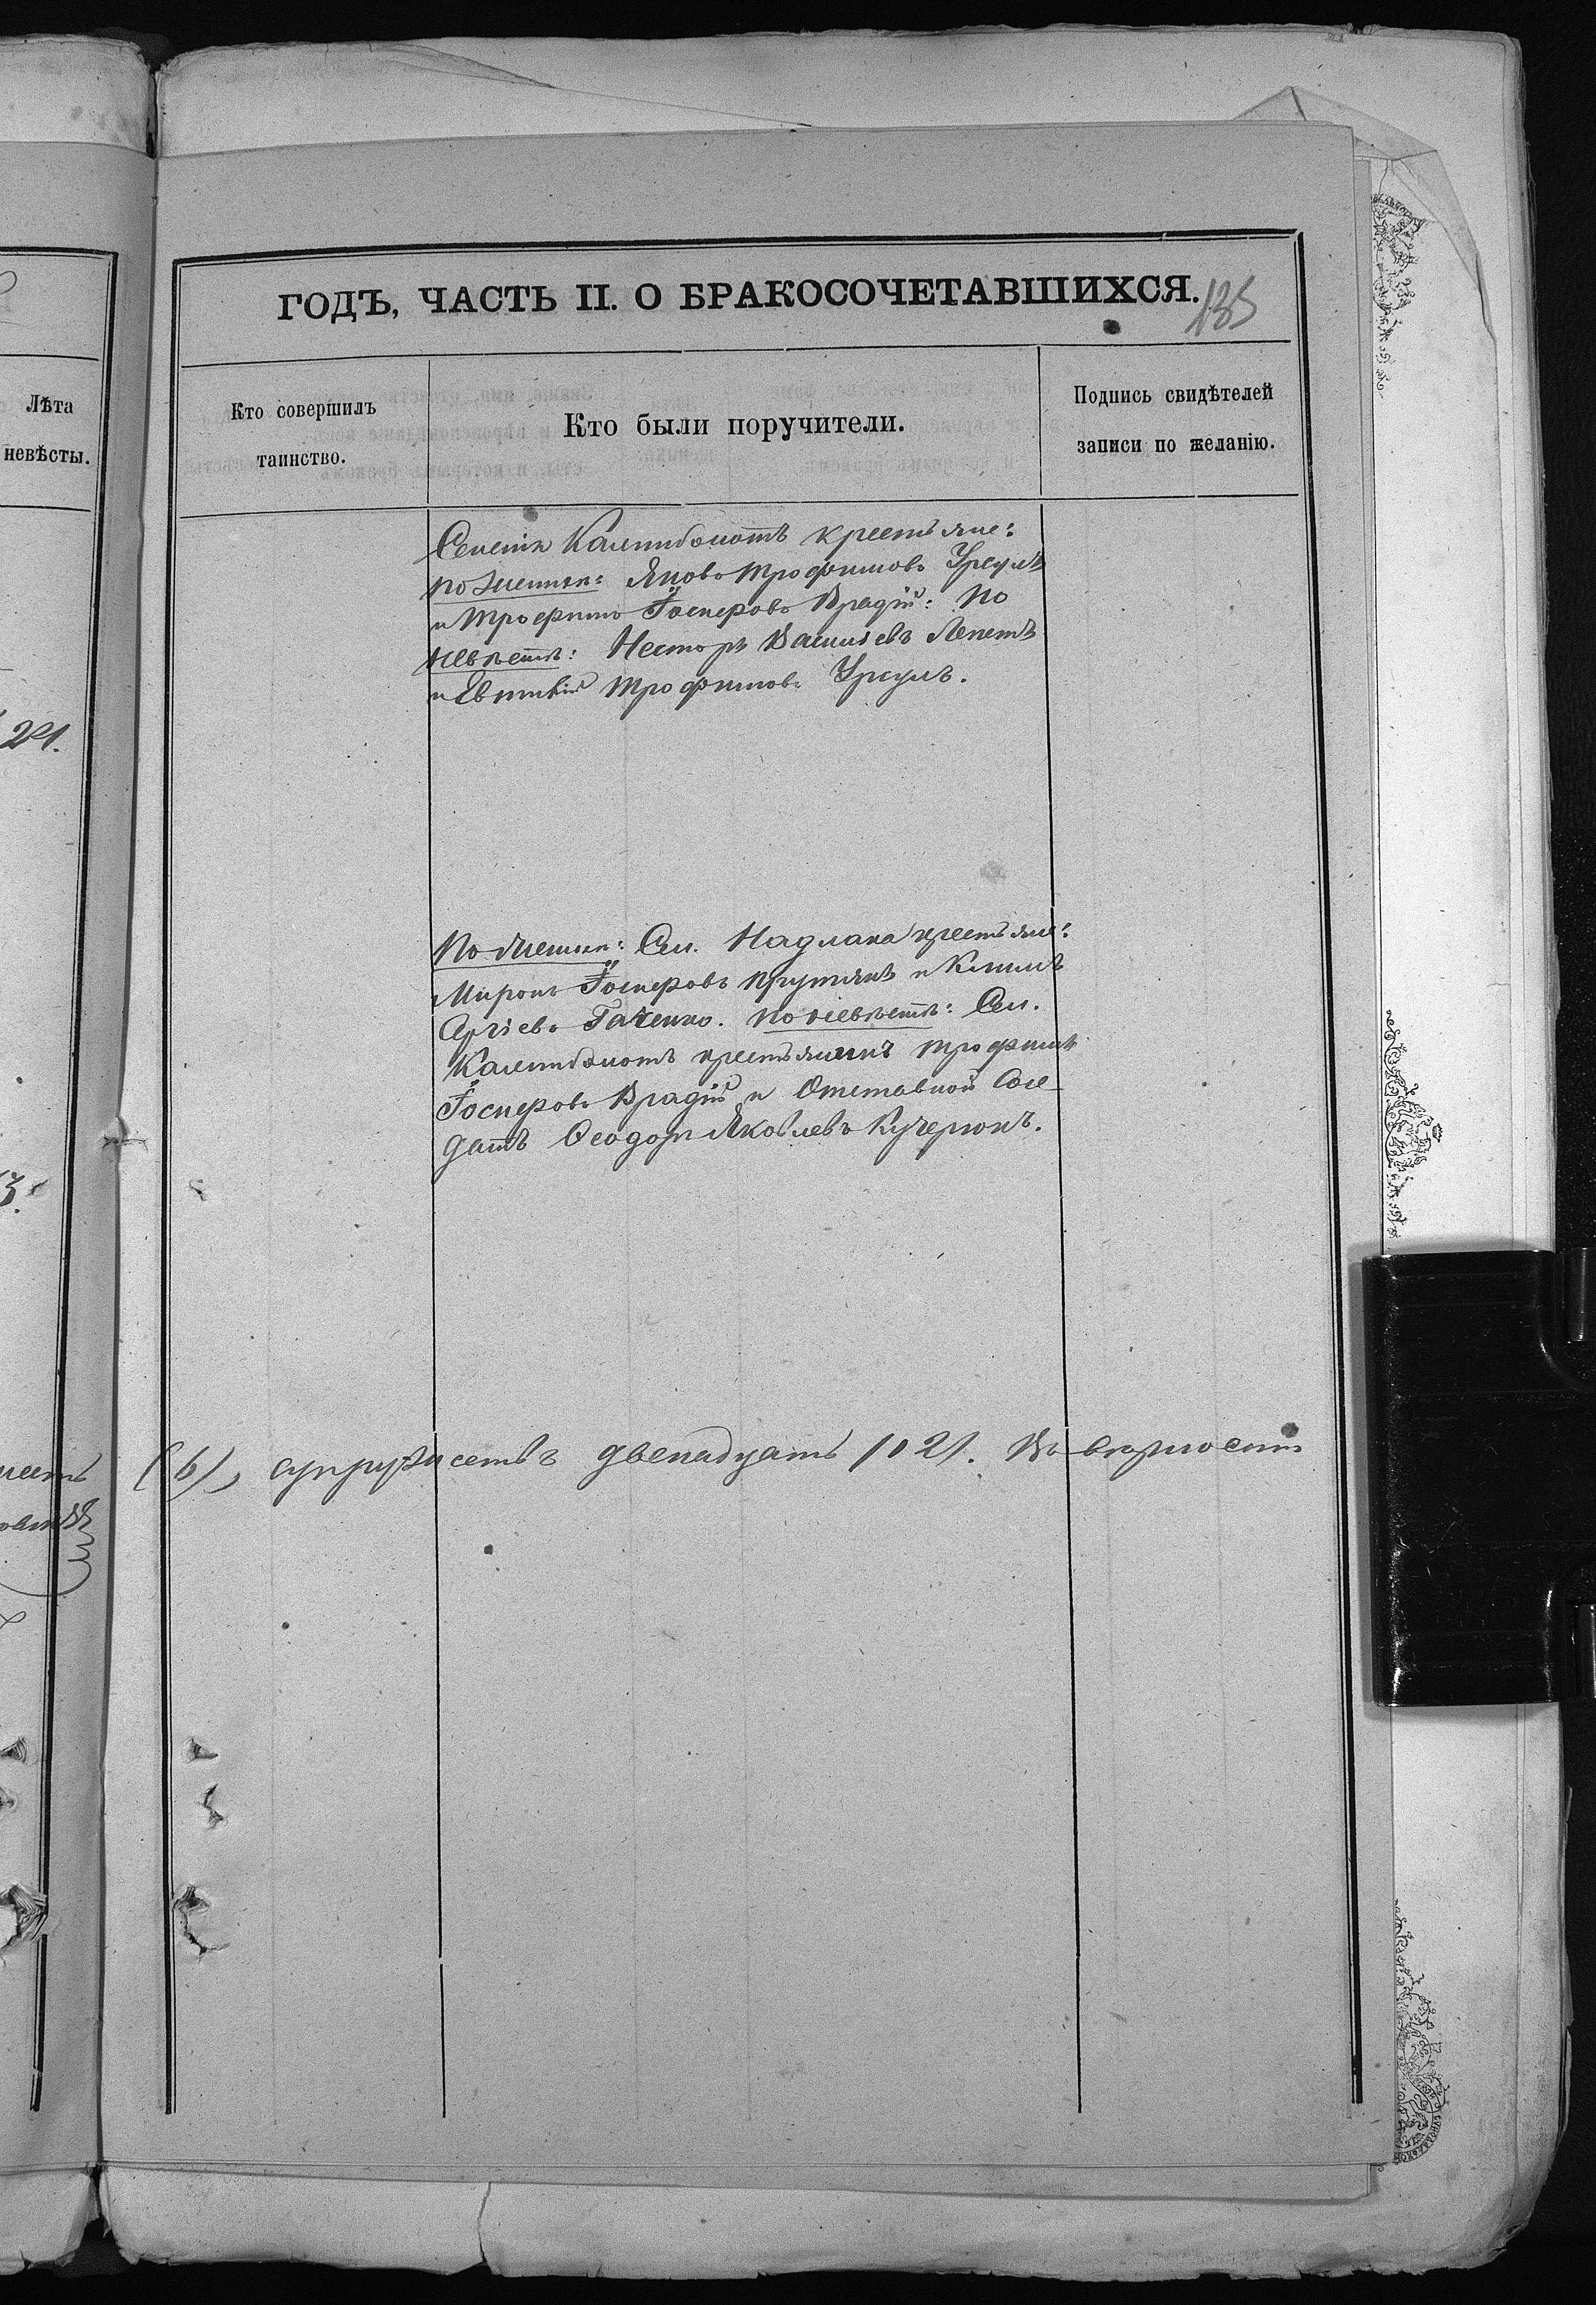 Лѣта
невѣсты.
21.
3.
ГОДЪ, ЧАСТЬ II. О БРАКОСОЧЕТАВШИХСЯ.
135
Кто совершилъ
таинство.
Кто были поручители.
Подпись свидѣтелей
записи по желанію.
Селенія Калиниболотъ крестьяне:
по женихѣ: Яковъ Трофимовъ Урсулъ
и Трофимъ Іосифовъ Врадій: по
невѣстѣ: Несторъ Васильевъ Лепетъ
и Евтихій Трофимовъ Урсулъ.
По женихѣ: Сел. Надлака крестьяне:
Миронъ Іосифовъ Прутянъ и Климъ
Гаченко. по невѣстѣ: Сел.
Калиниболотъ крестьянинъ Трофимъ
Іосифовъ Врадій и Отставной Сол-
датъ Ѳеодоръ Яковлевъ Кучерюкъ.
(6), супружествъ двенадцать (12). Въ вѣрности